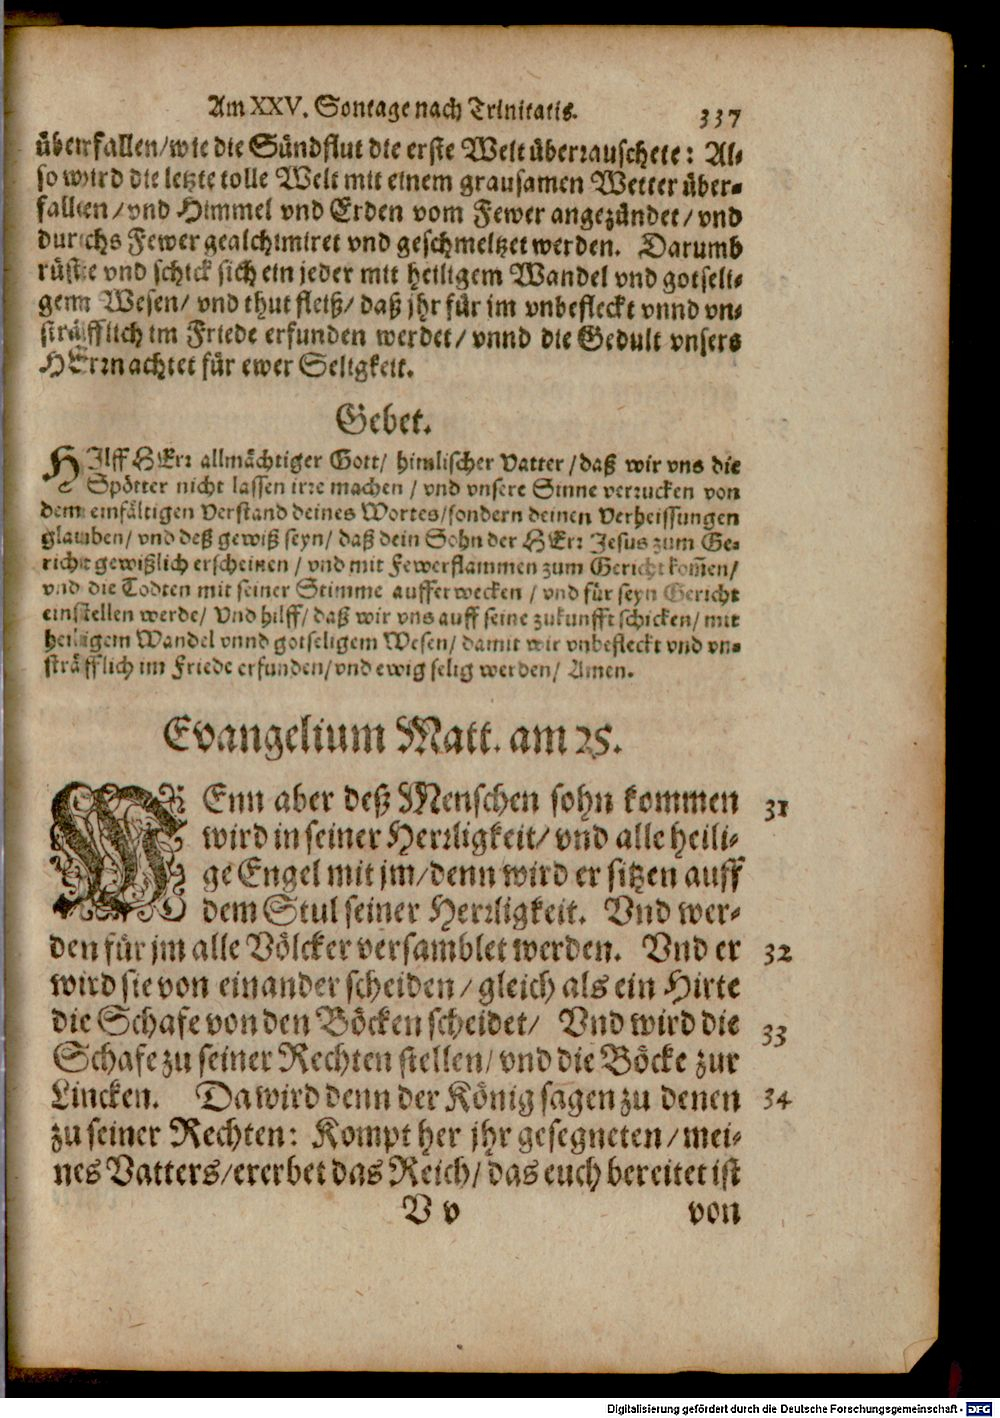 Am XXV. Sontage nach Trinitatis. 337
überfallen/wie die Sündflut die erste Welt überrauschete: Al-
so wird die letzte tolle Welt mit einem grausamen Wetter über-
fallen/vnd Himmel vnd Erden vom Fewer angezündet/vnd
durchs Fewer gealchimiret vnd geschmeltzet werden. Darumb
rüste vnd schick sich ein jeder mit heiligem Wandel vnd gotseli-
gem Wesen/ vnd thut fleiß/ daß jhr für jm vnbefleckt vnnd vn-
sträfflich im Friede erfunden werdet/ vnnd die Gedult vnsers
HErrn achtet für ewer Seligkeit.
Gebet.
HIlff HErr allmächtiger Gott/ himlischer Vatter/daß wir vns die
Spötter nicht lassen irre machen / vnd vnsere Sinne verrucken von
dem einfältigen Verstand deines Wortes/sondern deinen Verheissungen
glauben/ vnd deß gewiß seyn/ daß dein Sohn der HErr Jesus zum Ge-
richt gewißlich erscheinen / vnd mit Fewerflammen zum Gericht kom̃en/
vnd die Todten mit seiner Stimme aufferwecken / vnd für seyn Gericht
einstellen werde/ Vnd hilff/ daß wir vns auff seine zukunfft schicken/ mit
heiligem Wandel vnnd gotseligem Wesen/ damit wir vnbefleckt vnd vn-
sträfflich im Friede erfunden/vnd ewig selig werden/ Amen.
Evangelium Matt. am 25.
WEnn aber deß Menschen sohn kommen 31
wird in seiner Herrligkeit/ vnd alle heili-
ge Engel mit jm/denn wird er sitzen auff
dem Stul seiner Herrligkeit. Vnd wer-
den für jm alle Völcker versamblet werden. Vnd er 32
wird sie von einander scheiden/gleich als ein Hirte
die Schafe von den Böcken scheidet/ Vnd wird die 33
Schafe zu seiner Rechten stellen/vnd die Böcke zur
Lincken. Da wird denn der König sagen zu denen 34
zu seiner Rechten: Kompt her jhr gesegneten/mei-
nes Vatters/ererbet das Reich/das euch bereitet ist
V v von
Digitalisierung gefördert durch die Deutsche Forschungsgemeinschaft - DFG